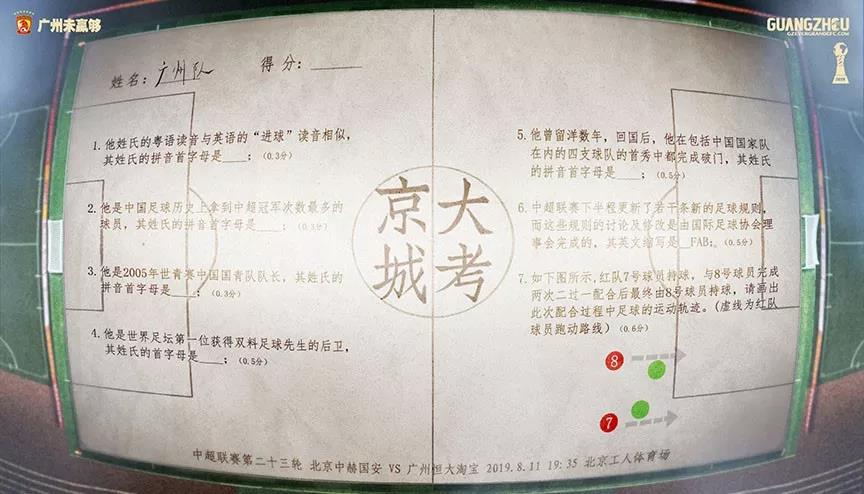 广州未赢够
GUANGZHOU
GZEVERGRANDEFC.COM
姓名：广州队 得分：____
1. 他姓氏的粤语读音与英语的“进球”读音相似，
其姓氏的拼音首字母是____；（0.3分）
2. 他是中国足球历史上拿到中超冠军次数最多的
球员，其姓氏的拼音首字母是____；（0.3分）
3. 他是2005年世青赛中国国青队队长，其姓氏的
拼音首字母是____；（0.3分）
4. 他是世界足坛第一位获得双料足球先生的后卫，
其姓氏的首字母是____；（0.5分）
京城
大考
5. 他曾留洋数年，回国后，他在包括中国国家队
在内的四支球队的首秀中都完成破门，其姓氏
的拼音首字母是____；（0.5分）
6. 中超联赛下半程更新了若干条新的足球规则，
而这些规则的讨论及修改是由国际足球协会理
事会完成的，其英文缩写是_FAB；（0.5分）
7. 如下图所示，红队7号球员持球，与8号球员完成
两次二过一配合后最终由8号球员持球，请画出
此次配合过程中足球的运动轨迹。（虚线为红队
球员跑动路线）（0.6分）
8
7
中超联赛第二十三轮 北京中赫国安 VS 广州恒大淘宝 2019.8.11 19:35 北京工人体育场